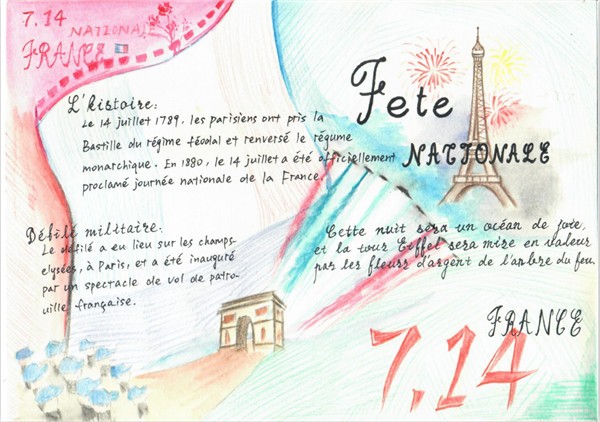 7.14
NATIONALE
FRANCE
Fete
NATIONALE
L'histoire:
Le 14 juillet 1789, les parisiens ont pris la
Bastille du régime féodal et renversé le régume
monarchique. En 1880, le 14 juillet a été officiellement
proclamé journée nationale de la France
Défilé militaire.
Le défilé a eu lieu sur les champs-
elysées, à Paris, et a été inauguré
par un spectacle de vol de patro-
uille française.
Cette nuit sera un océan de joie,
et la tour Eiffel sera mire en valeur
par les fleurs d'argent de l'arbre du feu.
FRANCE
7.14